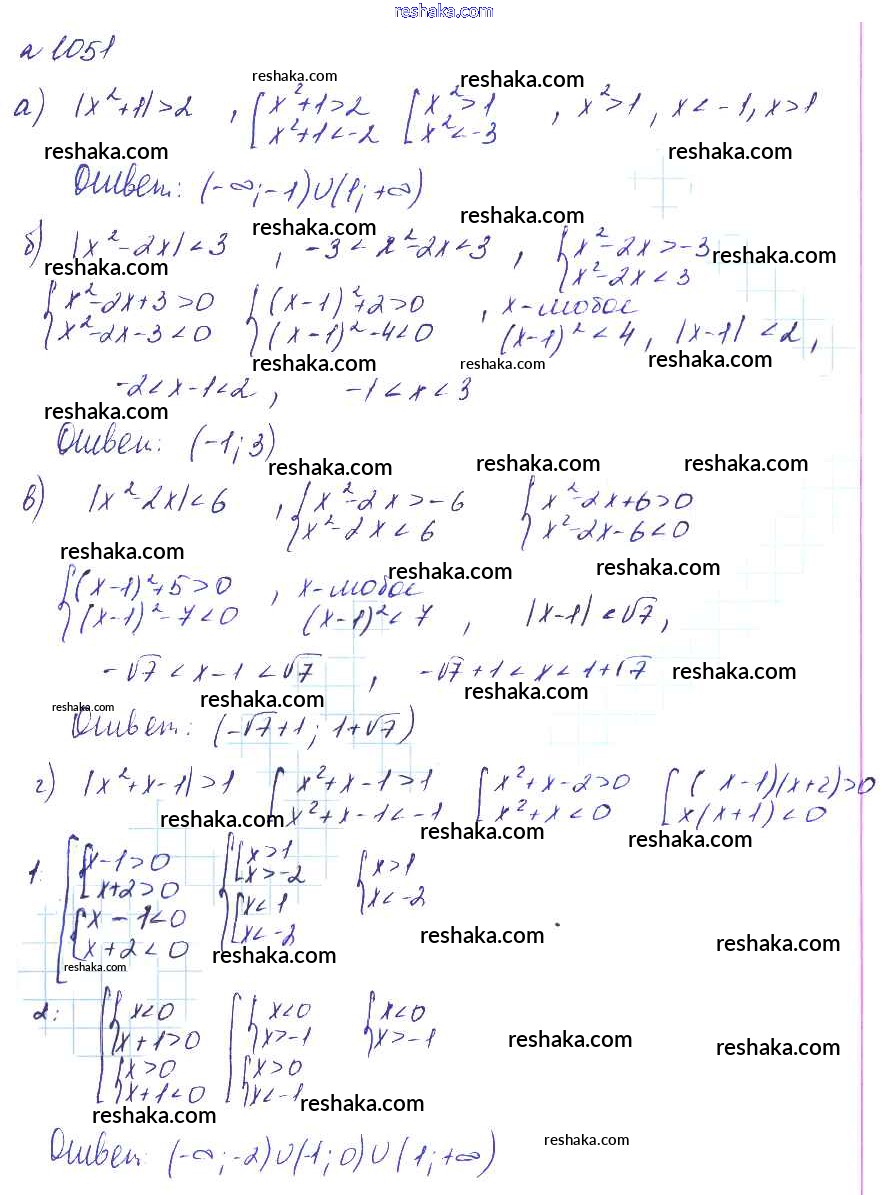 reshaka.com
№ 1051
reshaka.com reshaka.com
а) |x²+1|>2 , [x²+1>2 [x²>1 , x²>1 , x<-1, x>1
[x²+1<-2 [x²<-3
reshaka.com reshaka.com
Ответ: (-∞;-1)∪(1;+∞)
reshaka.com reshaka.com
б) |x²-2x|<3 , -3<x²-2x<3 , {x²-2x>-3 reshaka.com
reshaka.com {x²-2x<3
{x²-2x+3>0 {(x-1)²+2>0 , x-любое
{x²-2x-3<0 {(x-1)²-4<0 (x-1)²<4, |x-1|<2,
reshaka.com reshaka.com reshaka.com
-2<x-1<2, -1<x<3
reshaka.com
Ответ: (-1;3)
reshaka.com reshaka.com reshaka.com
в) |x²-2x|<6 , {x²-2x>-6 {x²-2x+6>0
{x²-2x<6 {x²-2x-6<0
reshaka.com reshaka.com reshaka.com
{(x-1)²+5>0 , x-любое
{(x-1)²-7<0 (x-1)²<7 , |x-1|<√7,
-√7<x-1<√7 , -√7+1<x<1+√7 reshaka.com
reshaka.com reshaka.com reshaka.com
Ответ: (-√7+1; 1+√7)
г) |x²+x-1|>1 [x²+x-1>1 [x²+x-2>0 [(x-1)(x+2)>0
[x²+x-1<-1 [x²+x<0 [x(x+1)<0
reshaka.com reshaka.com reshaka.com
1. [{x-1>0 [{x>1 {x>1
{x+2>0 {x>-2 {x<-2
{x-1<0 {x<1
{x+2<0 {x<-2
reshaka.com reshaka.com reshaka.com reshaka.com
2: [{x<0 [{x<0 {x<0
{x+1>0 {x>-1 {x>-1
reshaka.com reshaka.com
{x>0 {x>0
{x+1<0 {x<-1
reshaka.com reshaka.com
Ответ: (-∞;-2)∪(-1;0)∪(1;+∞)
reshaka.com